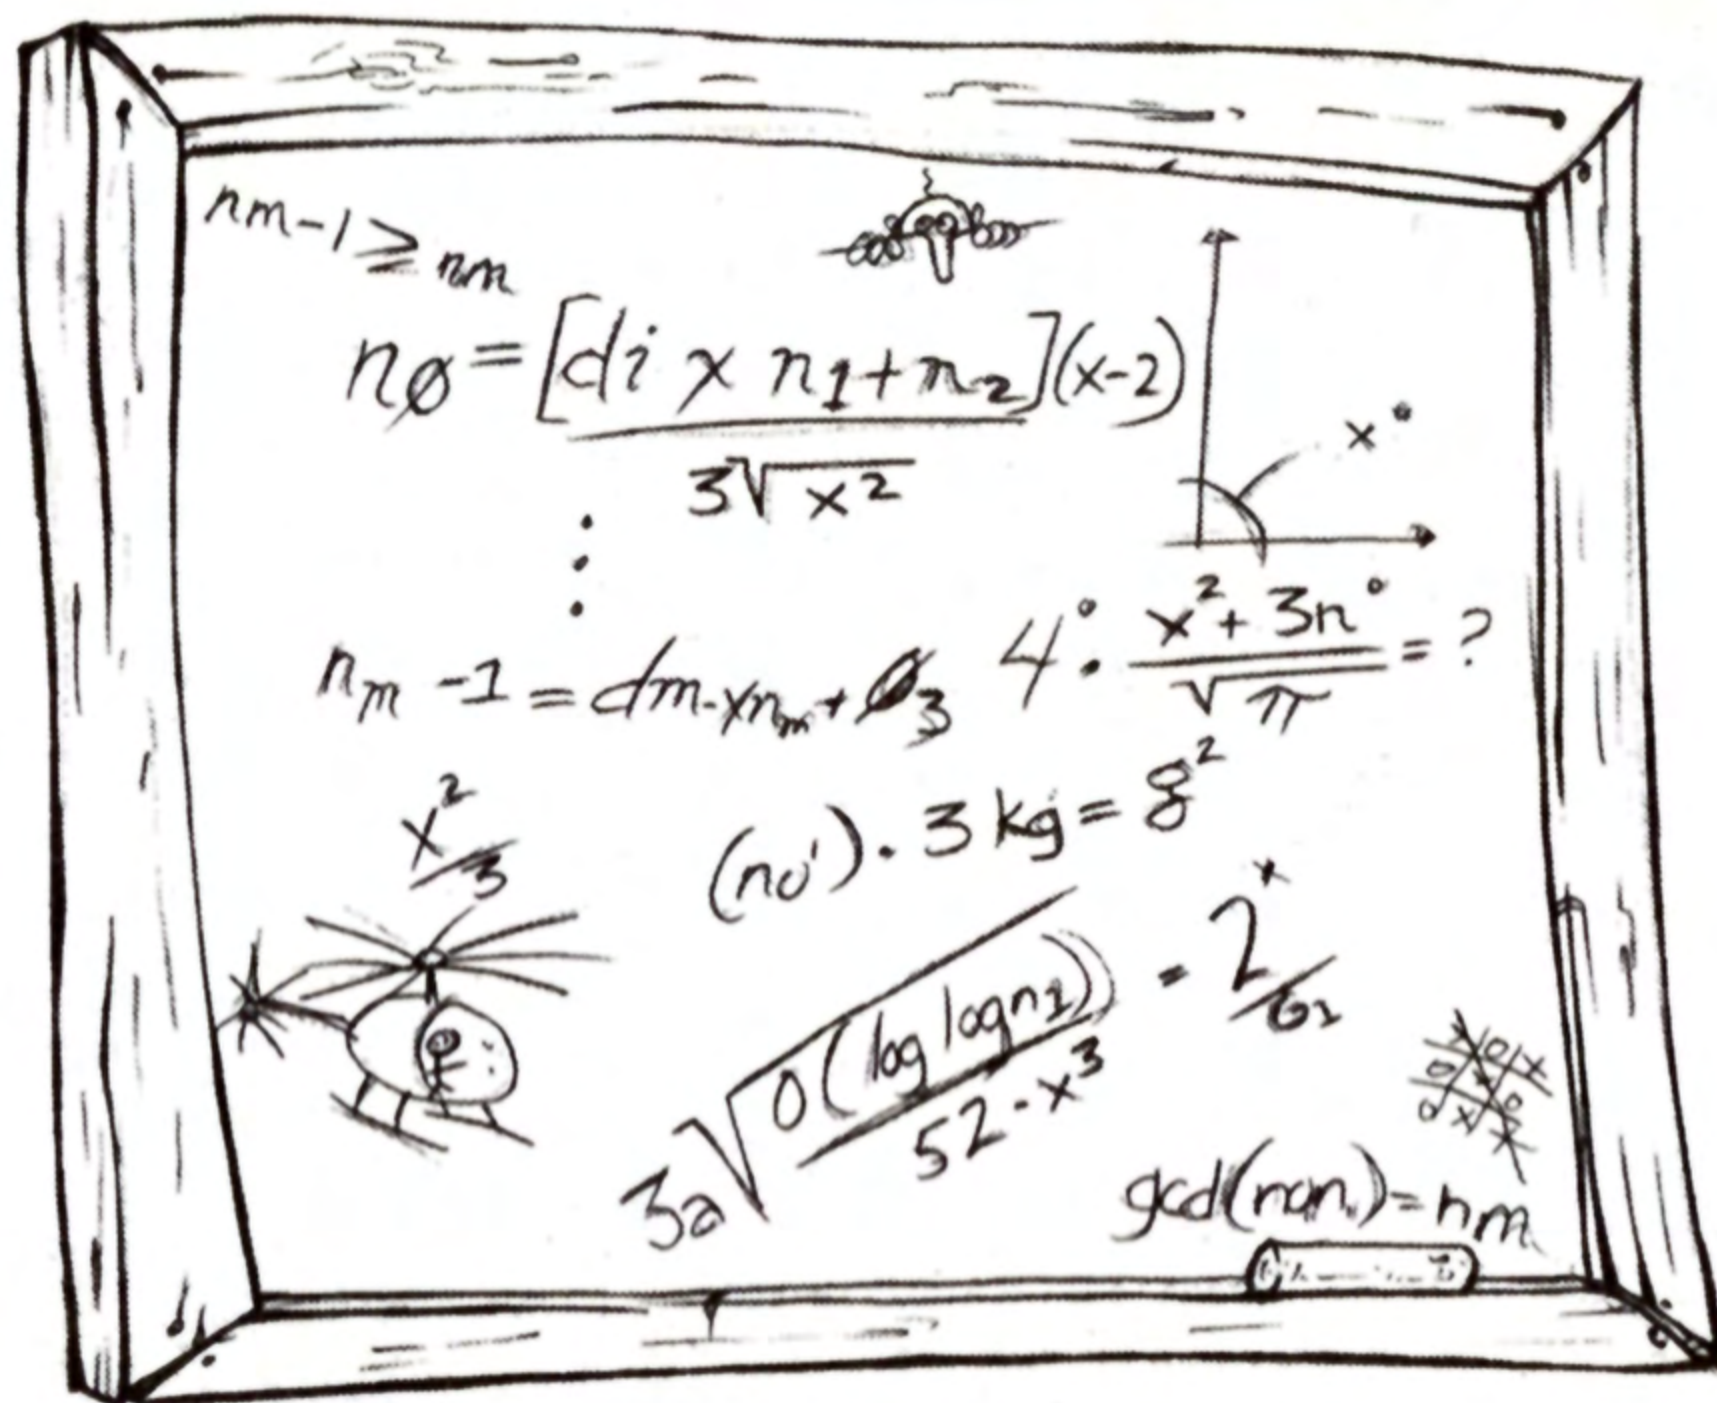 nm-1 ≥ nm
nø = [di x n1+n2](x-2)
3√x²
x°
nm -1 = dm-xnm + ø3
4° · x² + 3n° = ?
√π
x²/3
(no') · 3 kg = g²
3a√0(log logn1)) = 2ˣ/G1
52 - x³
gcd(non1) = nm